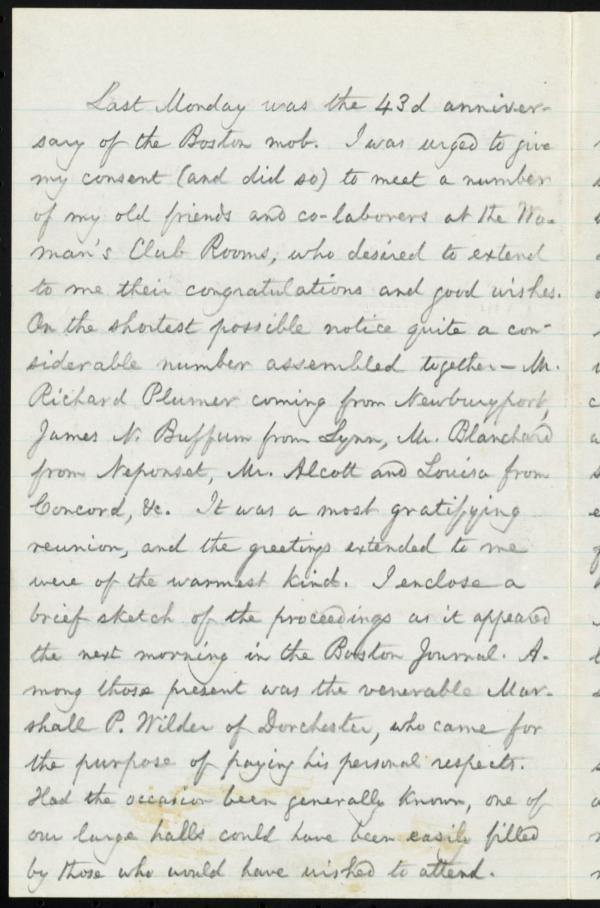 Last Monday was the 43d anniver-
sary of the Boston mob. I was urged to give
my consent (and did so) to meet a number
of my old friends and co-laborers at the Wo-
man's Club Rooms, who desired to extend
to me their congratulations and good wishes.
On the shortest possible notice quite a con-
siderable number assembled together—Mr.
Richard Plumer coming from Newburyport,
James N. Buffum from Lynn, Mr. Blanchard
from Neponset, Mr. Alcott and Louisa from
Concord, &c. It was a most gratifying
reunion, and the greetings extended to me
were of the warmest kind. I enclose a
brief sketch of the proceedings as it appeared
the next morning in the Boston Journal. A-
mong those present was the venerable Mar-
shall P. Wilder of Dorchester, who came for
the purpose of paying his personal respects.
Had the occasion been generally known, one of
our large halls could have been easily filled
by those who would have wished to attend.